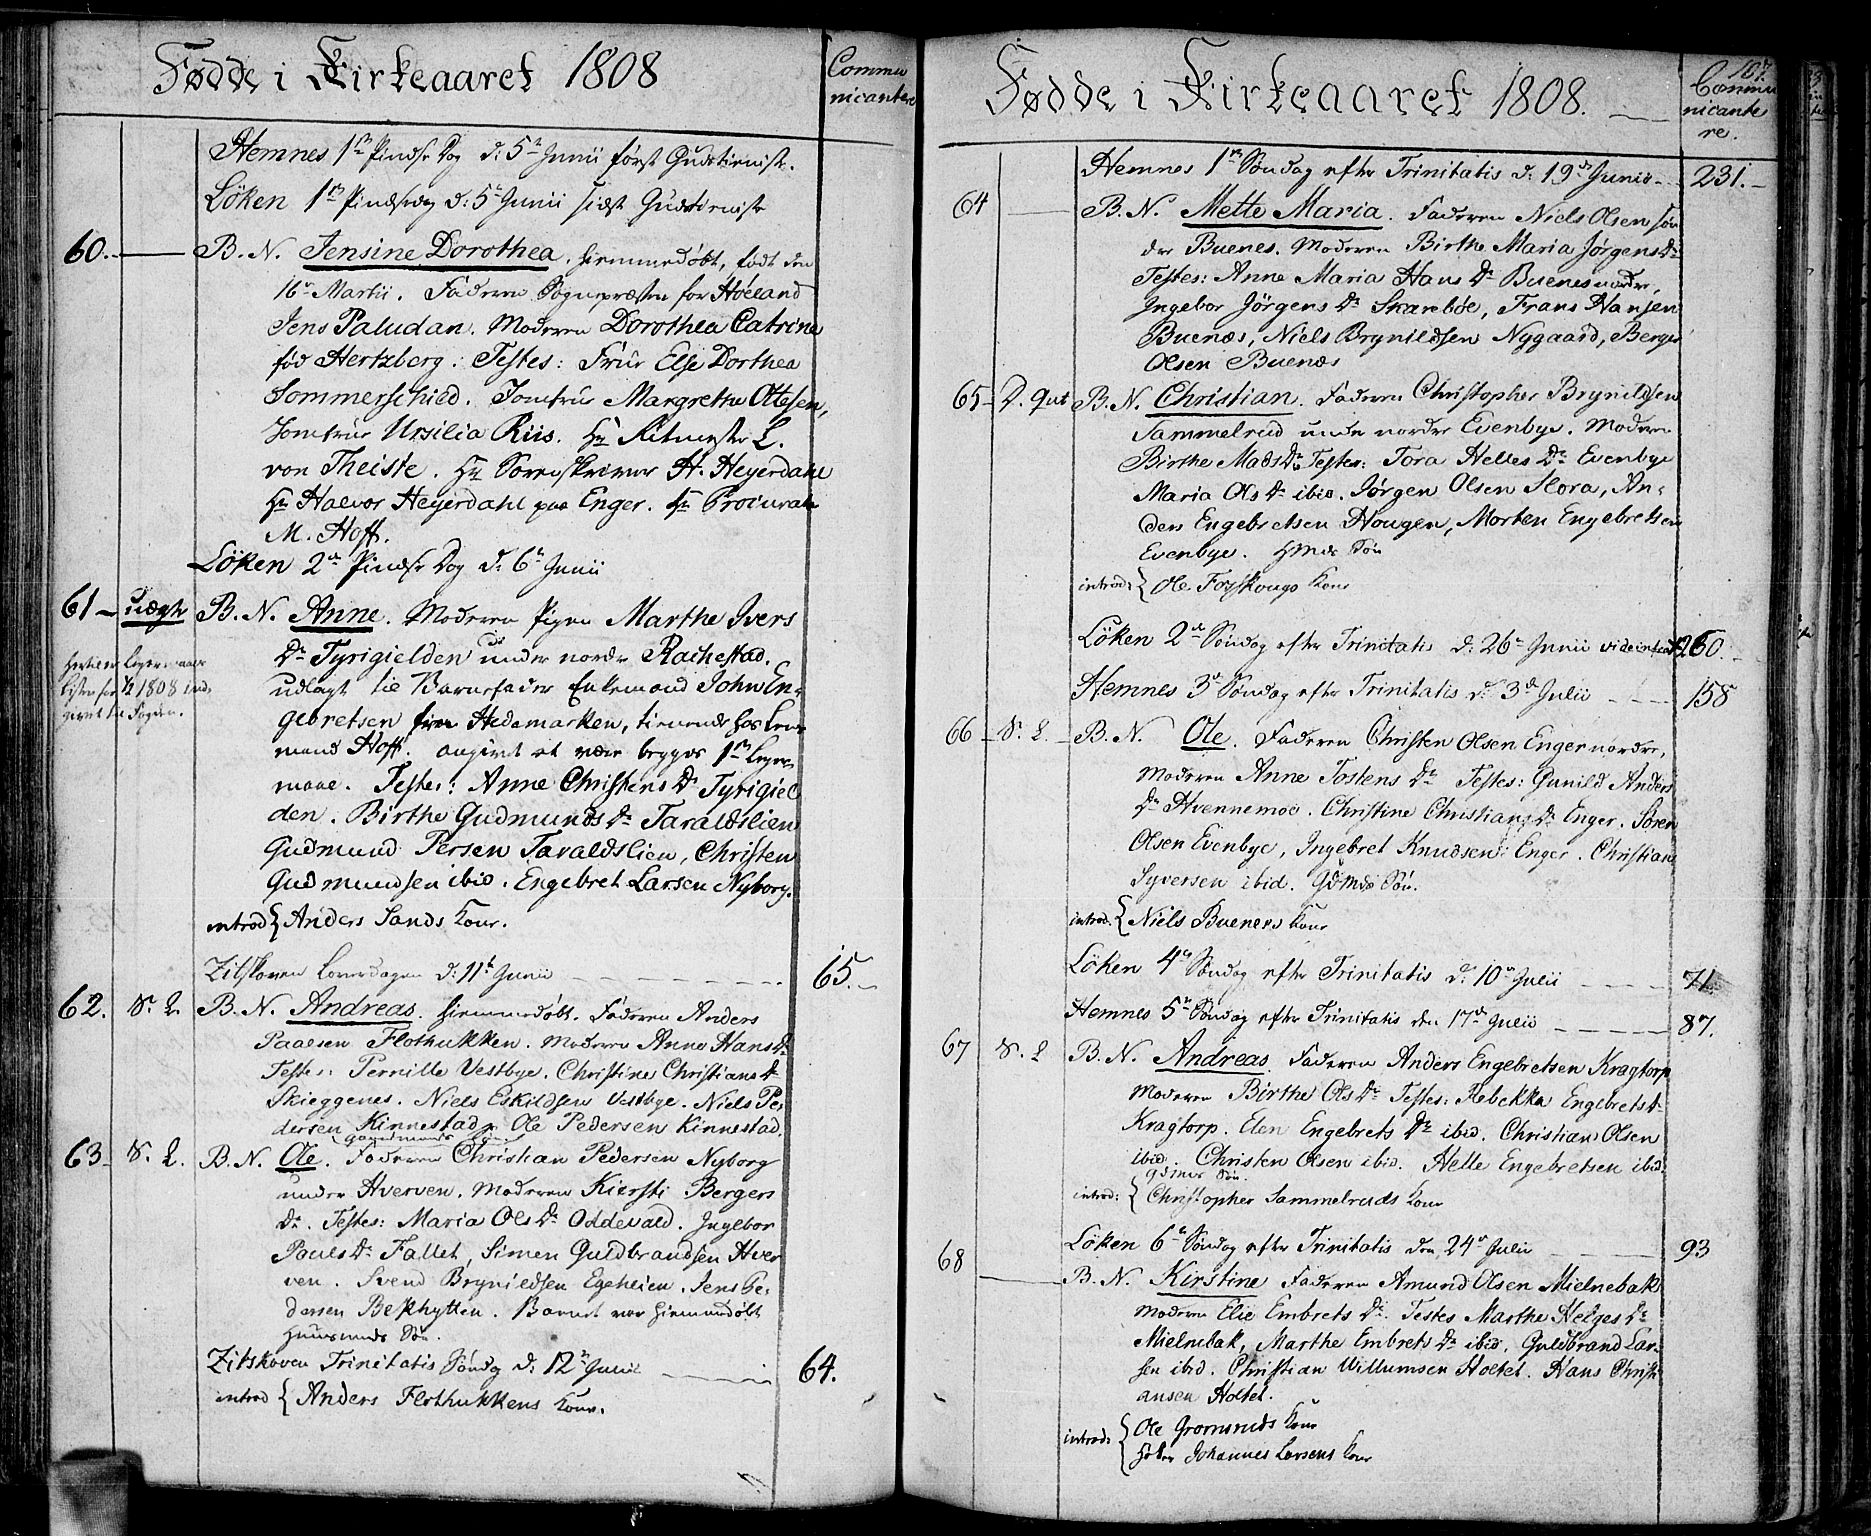 Fødde i Kirkeaaret 1808
Commu
nicantere
Hemnes 1ste Pindse Dag d: 5te Junii først Gudstieniste.
Løken 1ste Pindsedag d: 5te Junii sidste Gudstieniste
60. B. N. Jensine Dorothea. hiemmedøbt, født den
16de Martii. Faderen Sognepræsten for Høeland
Jens Paludan. Moderen Dorothea Catrine
fød Hertzberg. Testes: Frue Else Dorthea
Sommerschied. Jomfrue Margrethe Ottesen,
Jomfrue Ursilia Riis. Hr Ritmester L.
von Theiste. Hr Sorenskriver H. Heyerdahl
Hr Halvor Heyerdahl paa Enger. Hr Procurator
M. Hoff.
Løken 2den Pindse Dag d: 6te Junii
61 uægte B. N. Anne. Moderen Pigen Marthe Ivers
Dr Tyrigielden under nordre Rachestad.
udlagt til Barnefader Enkemand John En-
gebretsen fra Hedemarken, tienende hos Lens
mand Hoff. angivet at være begges 1ste Leyer-
maal. Testes: Anne Christens Dr Tyrigiel
den. Birthe Gudmunds Dr Taraldslien
Gudmund Persen Taraldslien, Christen
Gudmundsen ibid. Engebret Larsen Nyborg.
1808 ind-
givet til Fogden.
introd { Anders Sands Kone.
Zitskoven Løverdagen d: 11te Junii 65.
62. S. L. B. N. Andreas. hiemmedøbt. Faderen Anders
Paalsen Flothukken. Moderen Anne Hans Dr
Testes: Pernille Vestbye. Christine Christians Dr
Skieggenes. Niels Eskildsen Vestbye. Niels Pe-
dersen Kinnestad, Ole Pedersen Kinnestad.
63. S. L. B. N. Ole. Faderen Christian Pedersen Nyborg
under Hverven. Moderen Kiersti Bergers
Dr. Testes: Maria Ols Dr Oddevald. Ingebor
Pauls Dr Fallet, Simen Guldbrandsen Hver
ven. Svend Brynildsen Egeheien. Jens Pe-
dersen Bekhytten. Barnet var hiemmedøbt
Huusmands Søn.
Zitskoven Trinitatis Søndag d: 12te Junii 64.
introd { Anders Flothukkens Kone.
107.
Fødde i Kirkeaaret 1808.
Commu
nicante
re.
Hemnes 1ste Søndag efter Trinitatis d: 19de Junii 231.
64 B. N. Mette Maria. Faderen Niels Olsen søn
dre Buenes. Moderen Birthe Maria Jørgens Dr
Testes: Anne Maria Hans Dr Buenes nordre,
Ingebor Jörgens Dr Skarebøe, Frans Hansen
Buenæs, Niels Brynildsen Nygaard, Berger
Olsen Buenæs
65 D. qvt B. N. Christian. Faderen Christopher Brynildsen
Sammelrud under nordre Evenbye. Moderen
Birthe Mads Dr Testes: Tora Helles Dr Evenbye
Maria Ols Dr ibid. Jørgen Olsen Flora, An-
ders Engebretsen Hougen, Morten Engebretsen
Evenbye. Hmds Søn
introd: { Ole Kone
Løken 2den Søndag efter Trinitatis d: 26de Junii 260.
Hemnes 3de Søndag efter Trinitatis d: 3de Julii 158
66 S. L. B. N. Ole. Faderen Christen Olsen Enger nordre,
Moderen Anne Tostens Dr Testes: Gunild Anders
Dr Hvennemoe. Christine Christians Dr Enger. Søren
Olsen Evenbye, Ingebret Knudsen Enger. Christian
Syversen ibid. Gdmds Søn.
introd. { Niels Bueners Kone
Løken 4de Søndag efter Trinitatis d: 10de Julii 71.
Hemnes 5te Søndag efter Trinitatis den 17de Julii 87.
67 S. L B. N. Andreas. Faderen Anders Engebretsen Kragtorp
Moderen Birthe Ols Dr Testes: Rebekka Engebrets Dr
Kragtorp. Elen Engebrets Dr ibid. Christian Olsen
ibid. Christen Olsen ibid. Helle Engebretsen ibid.
Søn.
introd: { Christopher Sammelruds Kone
Løken 6te Søndag efter Trinitatis den 24de Julii 93
68 B. N. Kirstine Faderen Amund Olsen Mielnebak
Moderen Elie Embrets Dr. Testes Marthe Helges Dr
Mielnebak, Marthe Embrets Dr ibid. Guldbrand Lar-
sen ibid. Christian Willumsen Holtet. Hans Christi
ansen Holtet.
introd: { Ole Gromsruds Kone
Johannes Larsens Kone